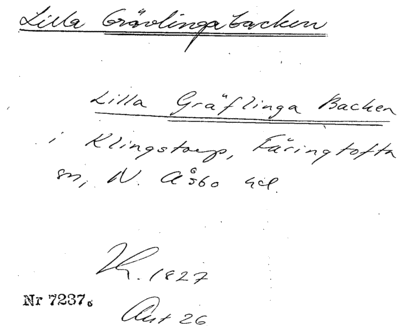 Lilla Grävlingabacken
Lilla Gräflinga Backen
i Klingstorp, Färingtofta
sn, N. Åsbo hd.
1827
Nr 7237.
Akt 26